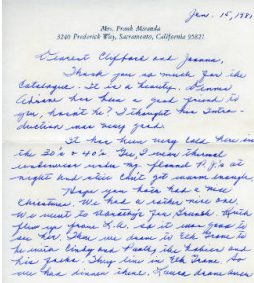 Jan. 15, 1981
Mrs. Frank Miranda
3240 Frederick Way, Sacramento, California 95821
Dearest Clifford and Joanna,
Thank you so much for the
Catalogue. It is a beauty.
has been a good friend to
you, hasn't he? I thought his Intro-
duction was very good.
It has been very cold here in
the 30's & 40's. Gee, I wear thermal
underwear under my flannel P.J.'s at
night and still can't get warm enough.
Hope you both had a nice
Christmas. We had a rather nice one.
We went to for Brunch.
flew up from L.A. so it was good to
see her. Then we drove to Elk Grove to
be with Cindy and the babies and
his folks. They live in Elk Grove. So
we had dinner there. drove over